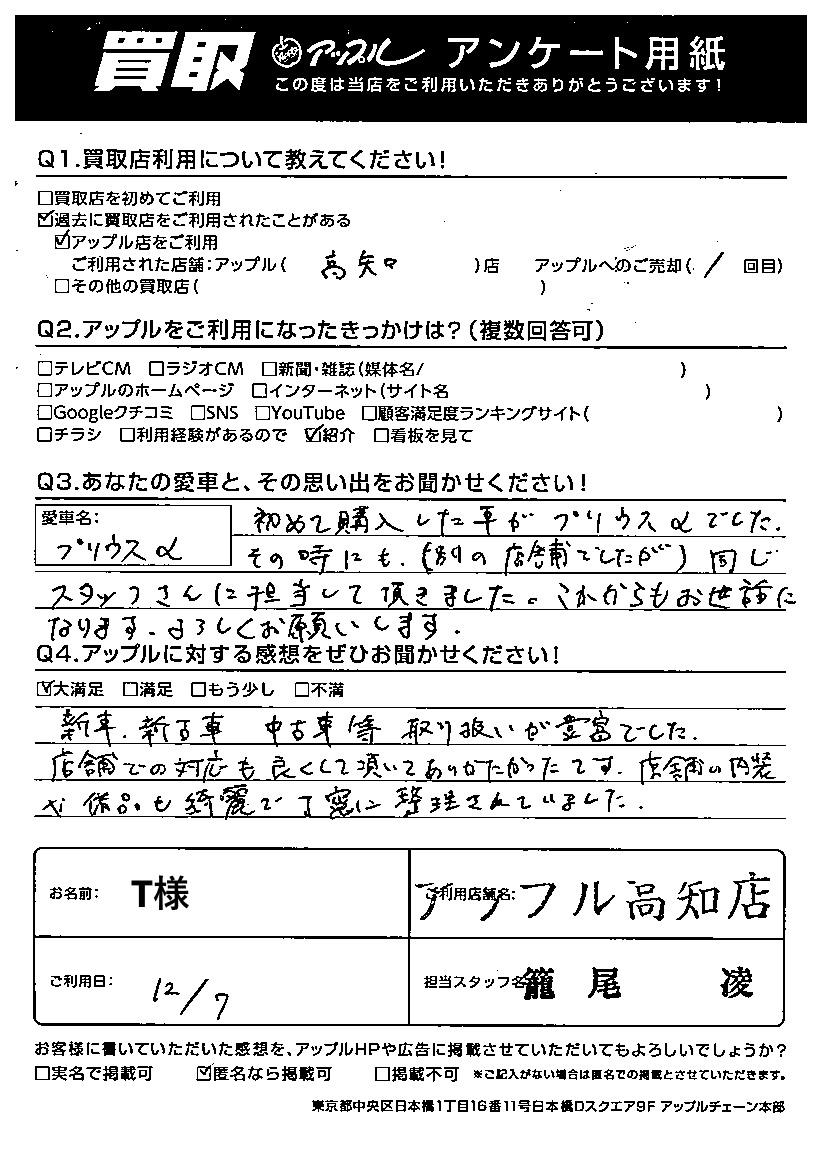 買取 アップル アンケート用紙
この度は当店をご利用いただきありがとうございます！
Q1.買取店利用について教えてください！
□買取店を初めてご利用
☑過去に買取店をご利用されたことがある
☑アップル店をご利用
ご利用された店舗：アップル（ 高知 ）店 アップルへのご売却（ / 回目）
□その他の買取店（ ）
Q2.アップルをご利用になったきっかけは？（複数回答可）
□テレビCM □ラジオCM □新聞・雑誌（媒体名/ ）
□アップルのホームページ □インターネット（サイト名 ）
□Googleクチコミ □SNS □YouTube □顧客満足度ランキングサイト（ ）
□チラシ □利用経験があるので ☑紹介 □看板を見て
Q3.あなたの愛車と、その思い出をお聞かせください！
愛車名：
プリウスα
初めて購入した車がプリウスαでした.
その時にも.(別の店舗でしたが)同じ
スタッフさんに担当して頂きました。これからもお世話に
なります.よろしくお願いします.
Q4.アップルに対する感想をぜひお聞かせください！
☑大満足 □満足 □もう少し □不満
新車.新古車 中古車等 取り扱いが豊富でした.
店舗での対応も良くして頂いてありがたかったです.店舗の内装
や備品も綺麗で丁寧に整理されていました.
お名前： T様
ご利用店舗名： アップル高知店
ご利用日： 12/7
担当スタッフ名 籠尾 凌
お客様に書いていただいた感想を、アップルHPや広告に掲載させていただいてもよろしいでしょうか？
□実名で掲載可 ☑匿名なら掲載可 □掲載不可 ※ご記入がない場合は匿名での掲載とさせていただきます。
東京都中央区日本橋1丁目16番11号日本橋Dスクエア9F アップルチェーン本部